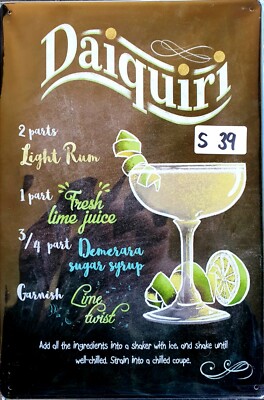 Daiquiri
S 39
2 parts
Light Rum
1 part
Fresh
lime juice
3/4 part
Demerara
sugar syrup
Garnish
Lime
twist
Add all the ingredients into a shaker with ice, and shake until
well-chilled. Strain into a chilled coupe.